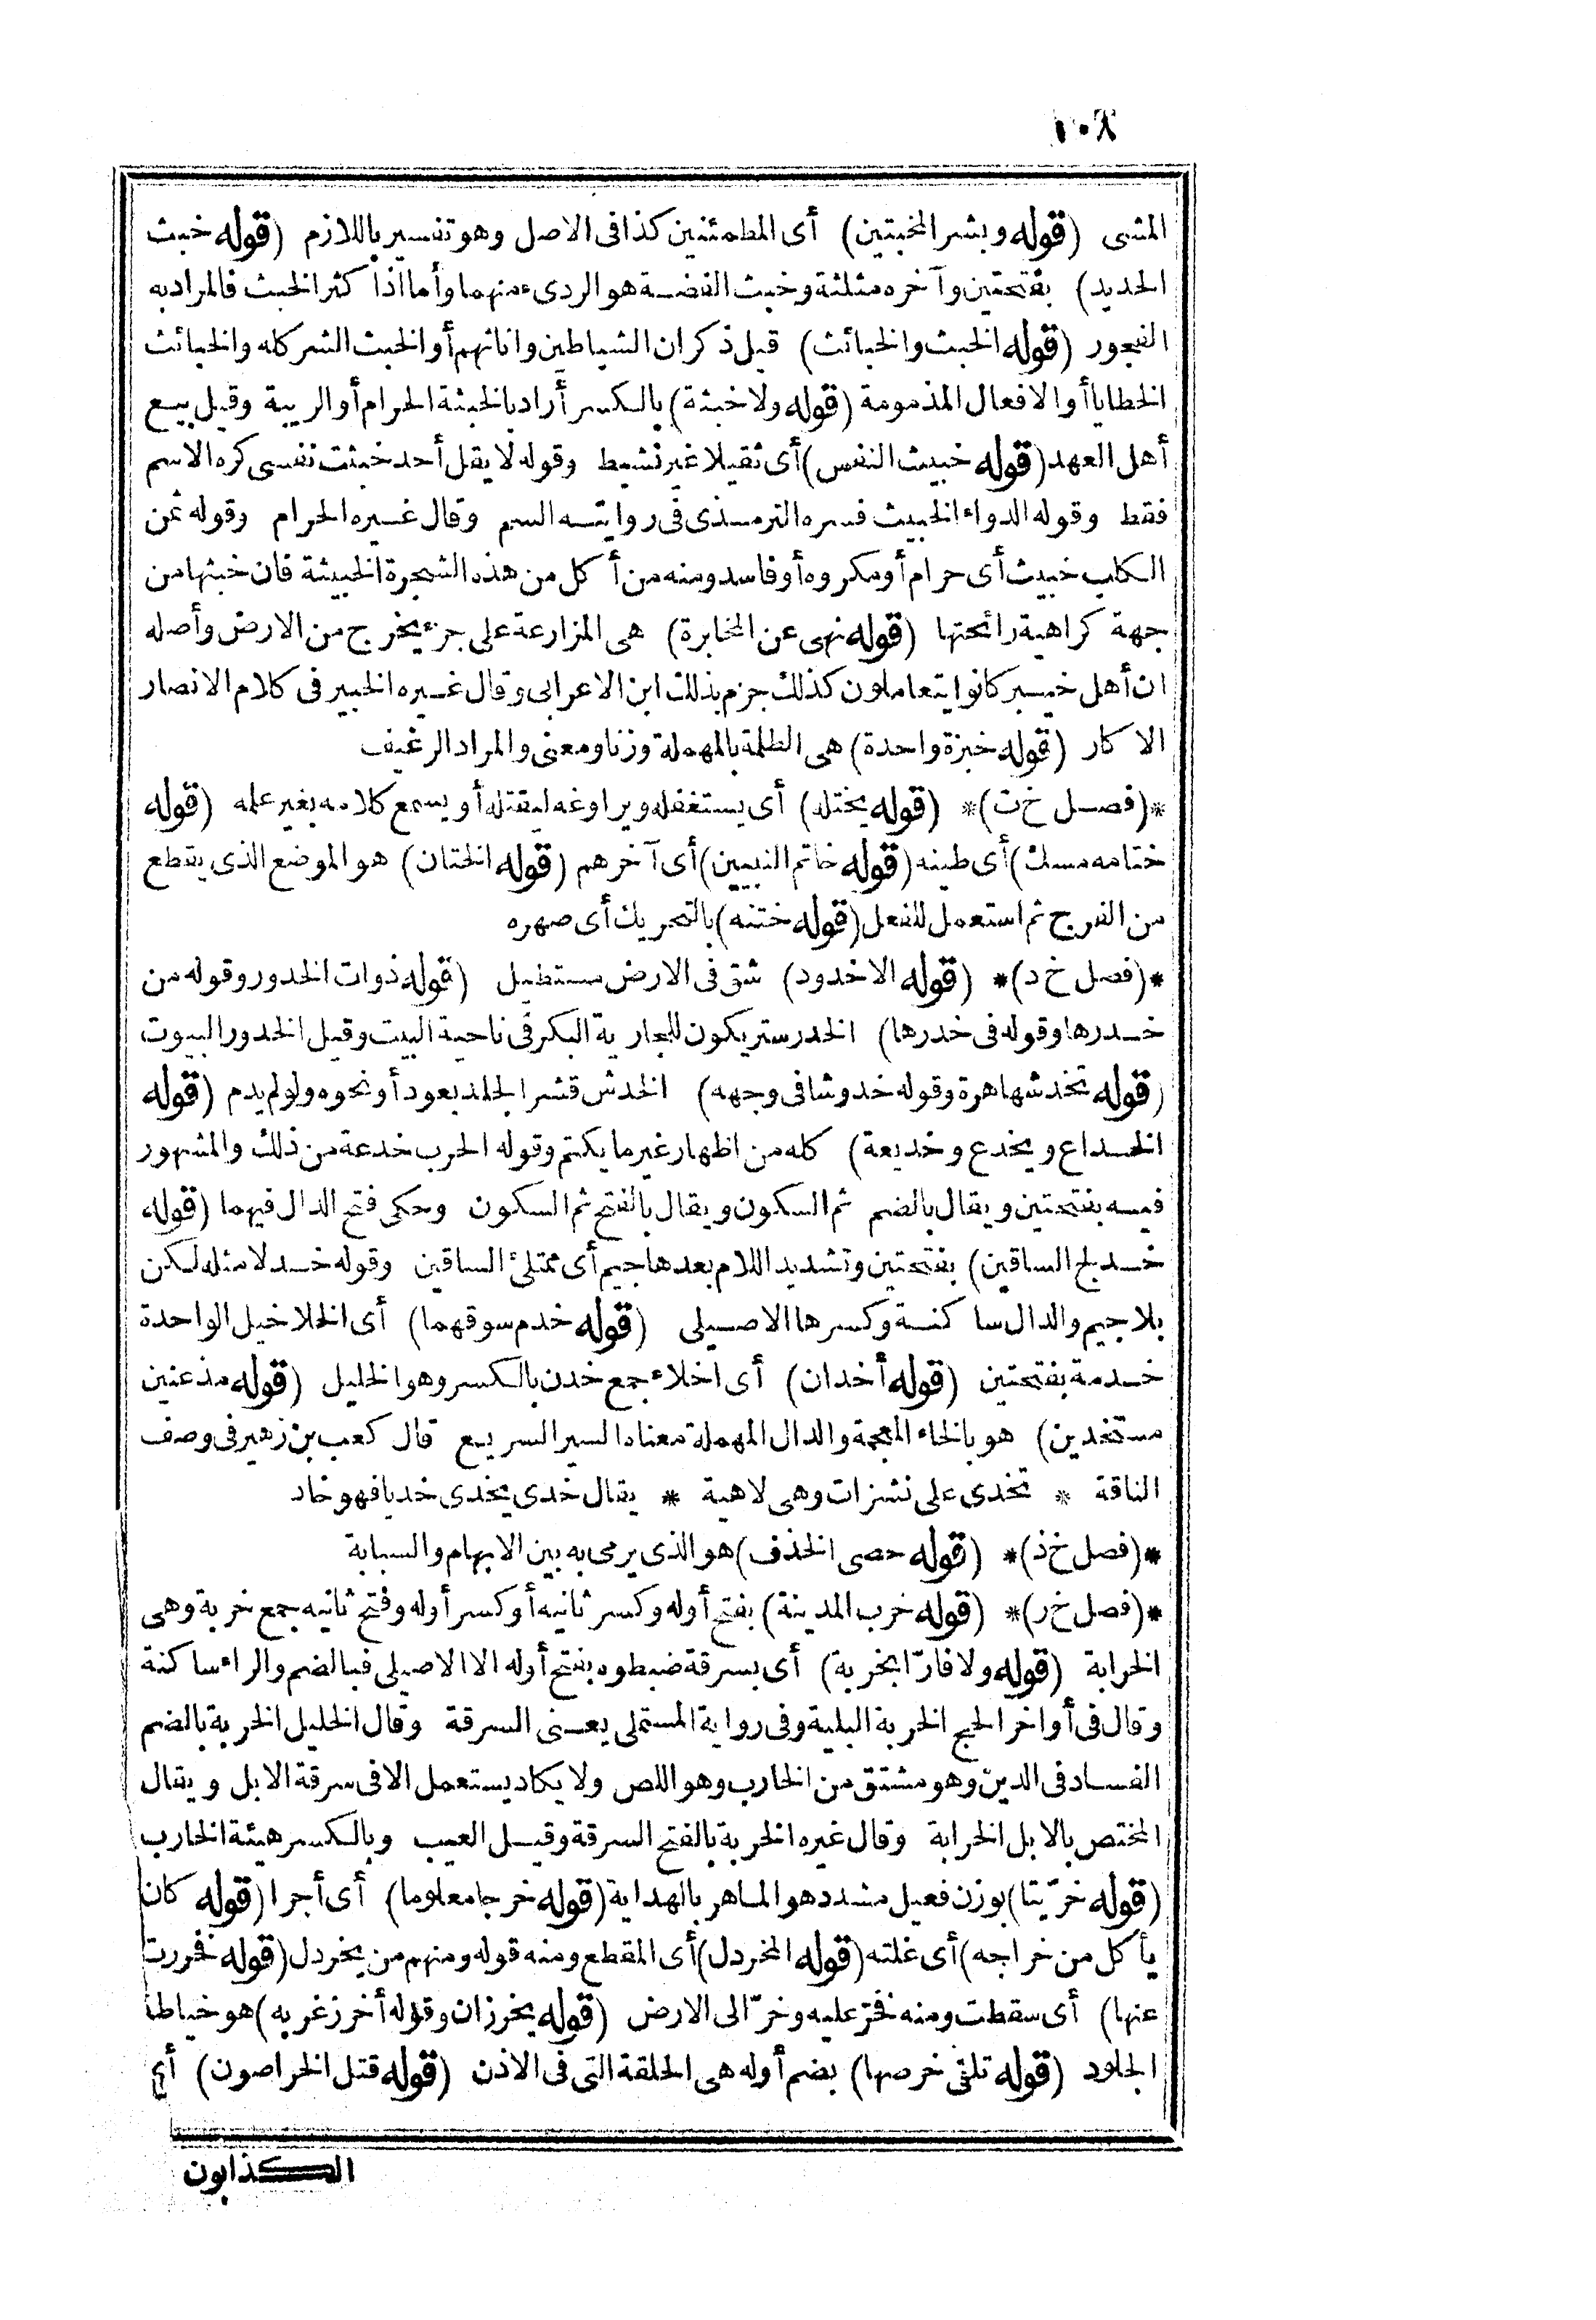 ١٠٨
المشى (قوله وبشر المخبتين) أى المطمئنين كذا فى الاصل وهو تفسير باللازم (قوله خبث
الحديد) بفتحتين وآخره مثلثة وخبث الفضة هو الردىء منهما وأما اذا كثر الخبث فالمراد به
الفجور (قوله الخبث والخبائث) قيل ذكران الشياطين واناثهم أو الخبث الشر كله والخبائث
الخطايا أو الافعال المذمومة (قوله ولا خبثة) بالكسر أراد بالخبثة الحرام أو الريبة وقيل بيع
أهل العهد (قوله خبيث النفس) أى ثقيلا غير نشيط وقوله لا يقل أحد خبثت نفسى كره الاسم
فقط وقوله الدواء الخبيث فسره الترمذى فى روايته السم وقال غيره الحرام وقوله ثمن
الكلب خبيث أى حرام أو مكروه أو فاسد ومنه من أكل من هذه الشجرة الخبيثة فان خبثها من
جهة كراهية رائحتها (قوله نهى عن المخابرة) هى المزارعة على جزء يخرج من الارض وأصله
ان أهل خيبر كانوا يتعاملون كذلك جزم بذلك ابن الاعرابى وقال غيره الخبير فى كلام الانصار
الاكار (قوله خبزة واحدة) هى الطلمة بالمهملة وزنا ومعنى والمراد الرغيف
*(فصل خ ت)* (قوله يختله) أى يستغفله ويراوغه ليقتله أو يسمع كلامه بغير علمه (قوله
ختامه مسك) أى طينه (قوله خاتم النبيين) أى آخرهم (قوله الختان) هو الموضع الذى يقطع
من الفرج ثم استعمل للفعل (قوله ختنه) بالتحريك أى صهره
*(فصل خ د)* (قوله الاخدود) شق فى الارض مستطيل (قوله ذوات الخدور وقوله من
خدرها وقوله فى خدرها) الخدر ستر يكون للجارية البكر فى ناحية البيت وقيل الخدور البيوت
(قوله تخدشها هرة وقوله خدوشا فى وجهه) الخدش قشر الجلد بعود أو نحوه ولو لم يدم (قوله
الخداع ويخدع وخديعة) كله من اظهار غير ما يكتم وقوله الحرب خدعة من ذلك والمشهور
فيه بفتحتين ويقال بالضم ثم السكون ويقال بالفتح ثم السكون وحكى فتح الدال فيهما (قوله
خدلج الساقين) بفتحتين وتشديد اللام بعدها جيم أى ممتلئ الساقين وقوله خدلا مثله لكن
بلا جيم والدال ساكنة وكسرها الاصيلى (قوله خدم سوقهما) أى الخلاخيل الواحدة
خدمة بفتحتين (قوله أخدان) أى اخلاء جمع خدن بالكسر وهو الخليل (قوله مذعنين
مستخدين) هو بالخاء المعجمة والدال المهملة معناه السير السريع قال كعب بن زهير فى وصف
الناقة * تخدى على نشزات وهى لاهية * يقال خدى يخدى خديا فهو خاد
*(فصل خ ذ)* (قوله حصى الخذف) هو الذى يرمى به بين الابهام والسبابة
*(فصل خ ر)* (قوله خرب المدينة) بفتح أوله وكسر ثانيه أو كسر أوله وفتح ثانيه جمع خربة وهى
الخرابة (قوله ولا فارّا بخربة) أى بسرقة ضبطوه بفتح أوله الا الاصيلى فبالضم والراء ساكنة
وقال فى أواخر الحج الخربة البلية وفى رواية المستملى يعنى السرقة وقال الخليل الخربة بالضم
الفساد فى الدين وهو مشتق من الخارب وهو اللص ولا يكاد يستعمل الا فى سرقة الابل ويقال
المختص بالابل الخرابة وقال غيره الخربة بالفتح السرقة وقيل العيب وبالكسر هيئة الخارب
(قوله خرّيتا) بوزن فعيل مشدد هو الماهر بالهداية (قوله خرجا معلوما) أى أجرا (قوله كان
يأكل من خراجه) أى غلته (قوله المخردل) أى المقطع ومنه قوله ومنهم من يخردل (قوله فخررت
عنها) أى سقطت ومنه فخرّ عليه وخرّ الى الارض (قوله يخرزان وقوله أخرز غربه) هو خياطة
الجلود (قوله تلقى خرصها) بضم أوله هى الحلقة التى فى الاذن (قوله قتل الخراصون) أى
الكذابون